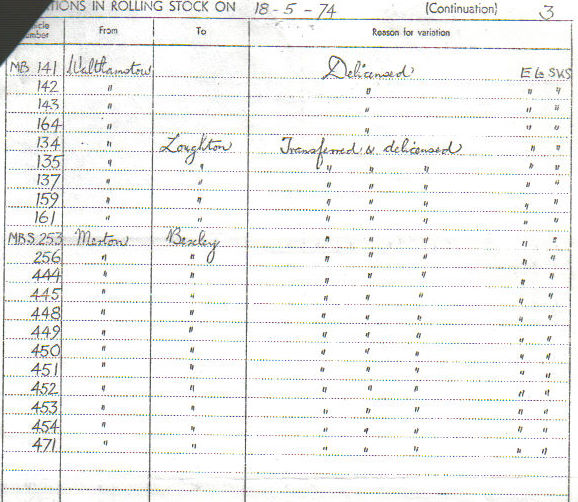 TIONS IN ROLLING STOCK ON 18-5-74 (Continuation) 3
icle umber From To Reason for variation
MB 141 Walthamstow Delicensed E La SVS
142 " " " "
143 " " " "
164 " " " "
134 " Loughton Transferred & delicensed " "
135 " " " " " " "
137 " " " " " " "
159 " " " " " " "
161 " " " " " " "
MBS 253 Merton Bexley " " " " "
256 " " " " " " "
444 " " " " " " "
445 " " " " " " "
448 " " " " " " "
449 " " " " " " "
450 " " " " " " "
451 " " " " " " "
452 " " " " " " "
453 " " " " " " "
454 " " " " " " "
471 " " " " " " "